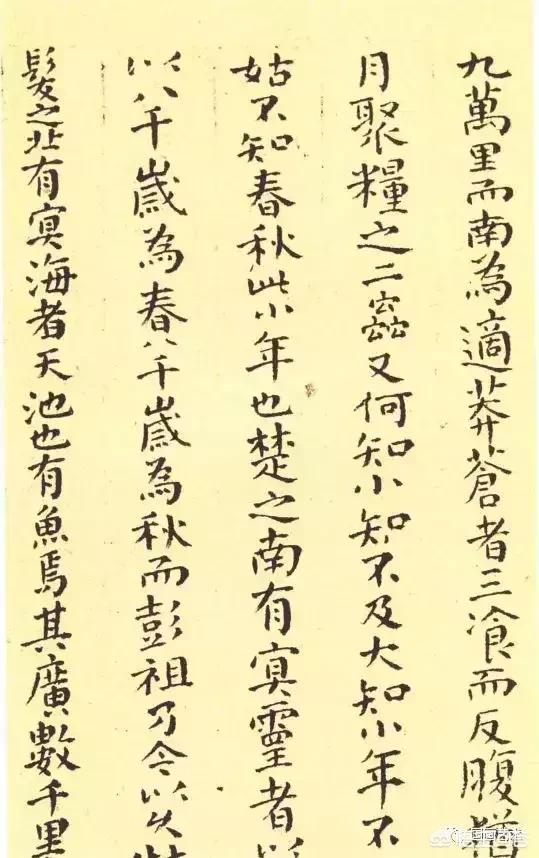 九萬里而南為適莽蒼者三飡而反腹猶
月聚糧之二蟲又何知小知不及大知小年不
姑不知春秋此小年也楚之南有冥靈者以
以八千歲為春八千歲為秋而彭祖乃今以久特
髮之北有冥海者天池也有魚焉其廣數千里